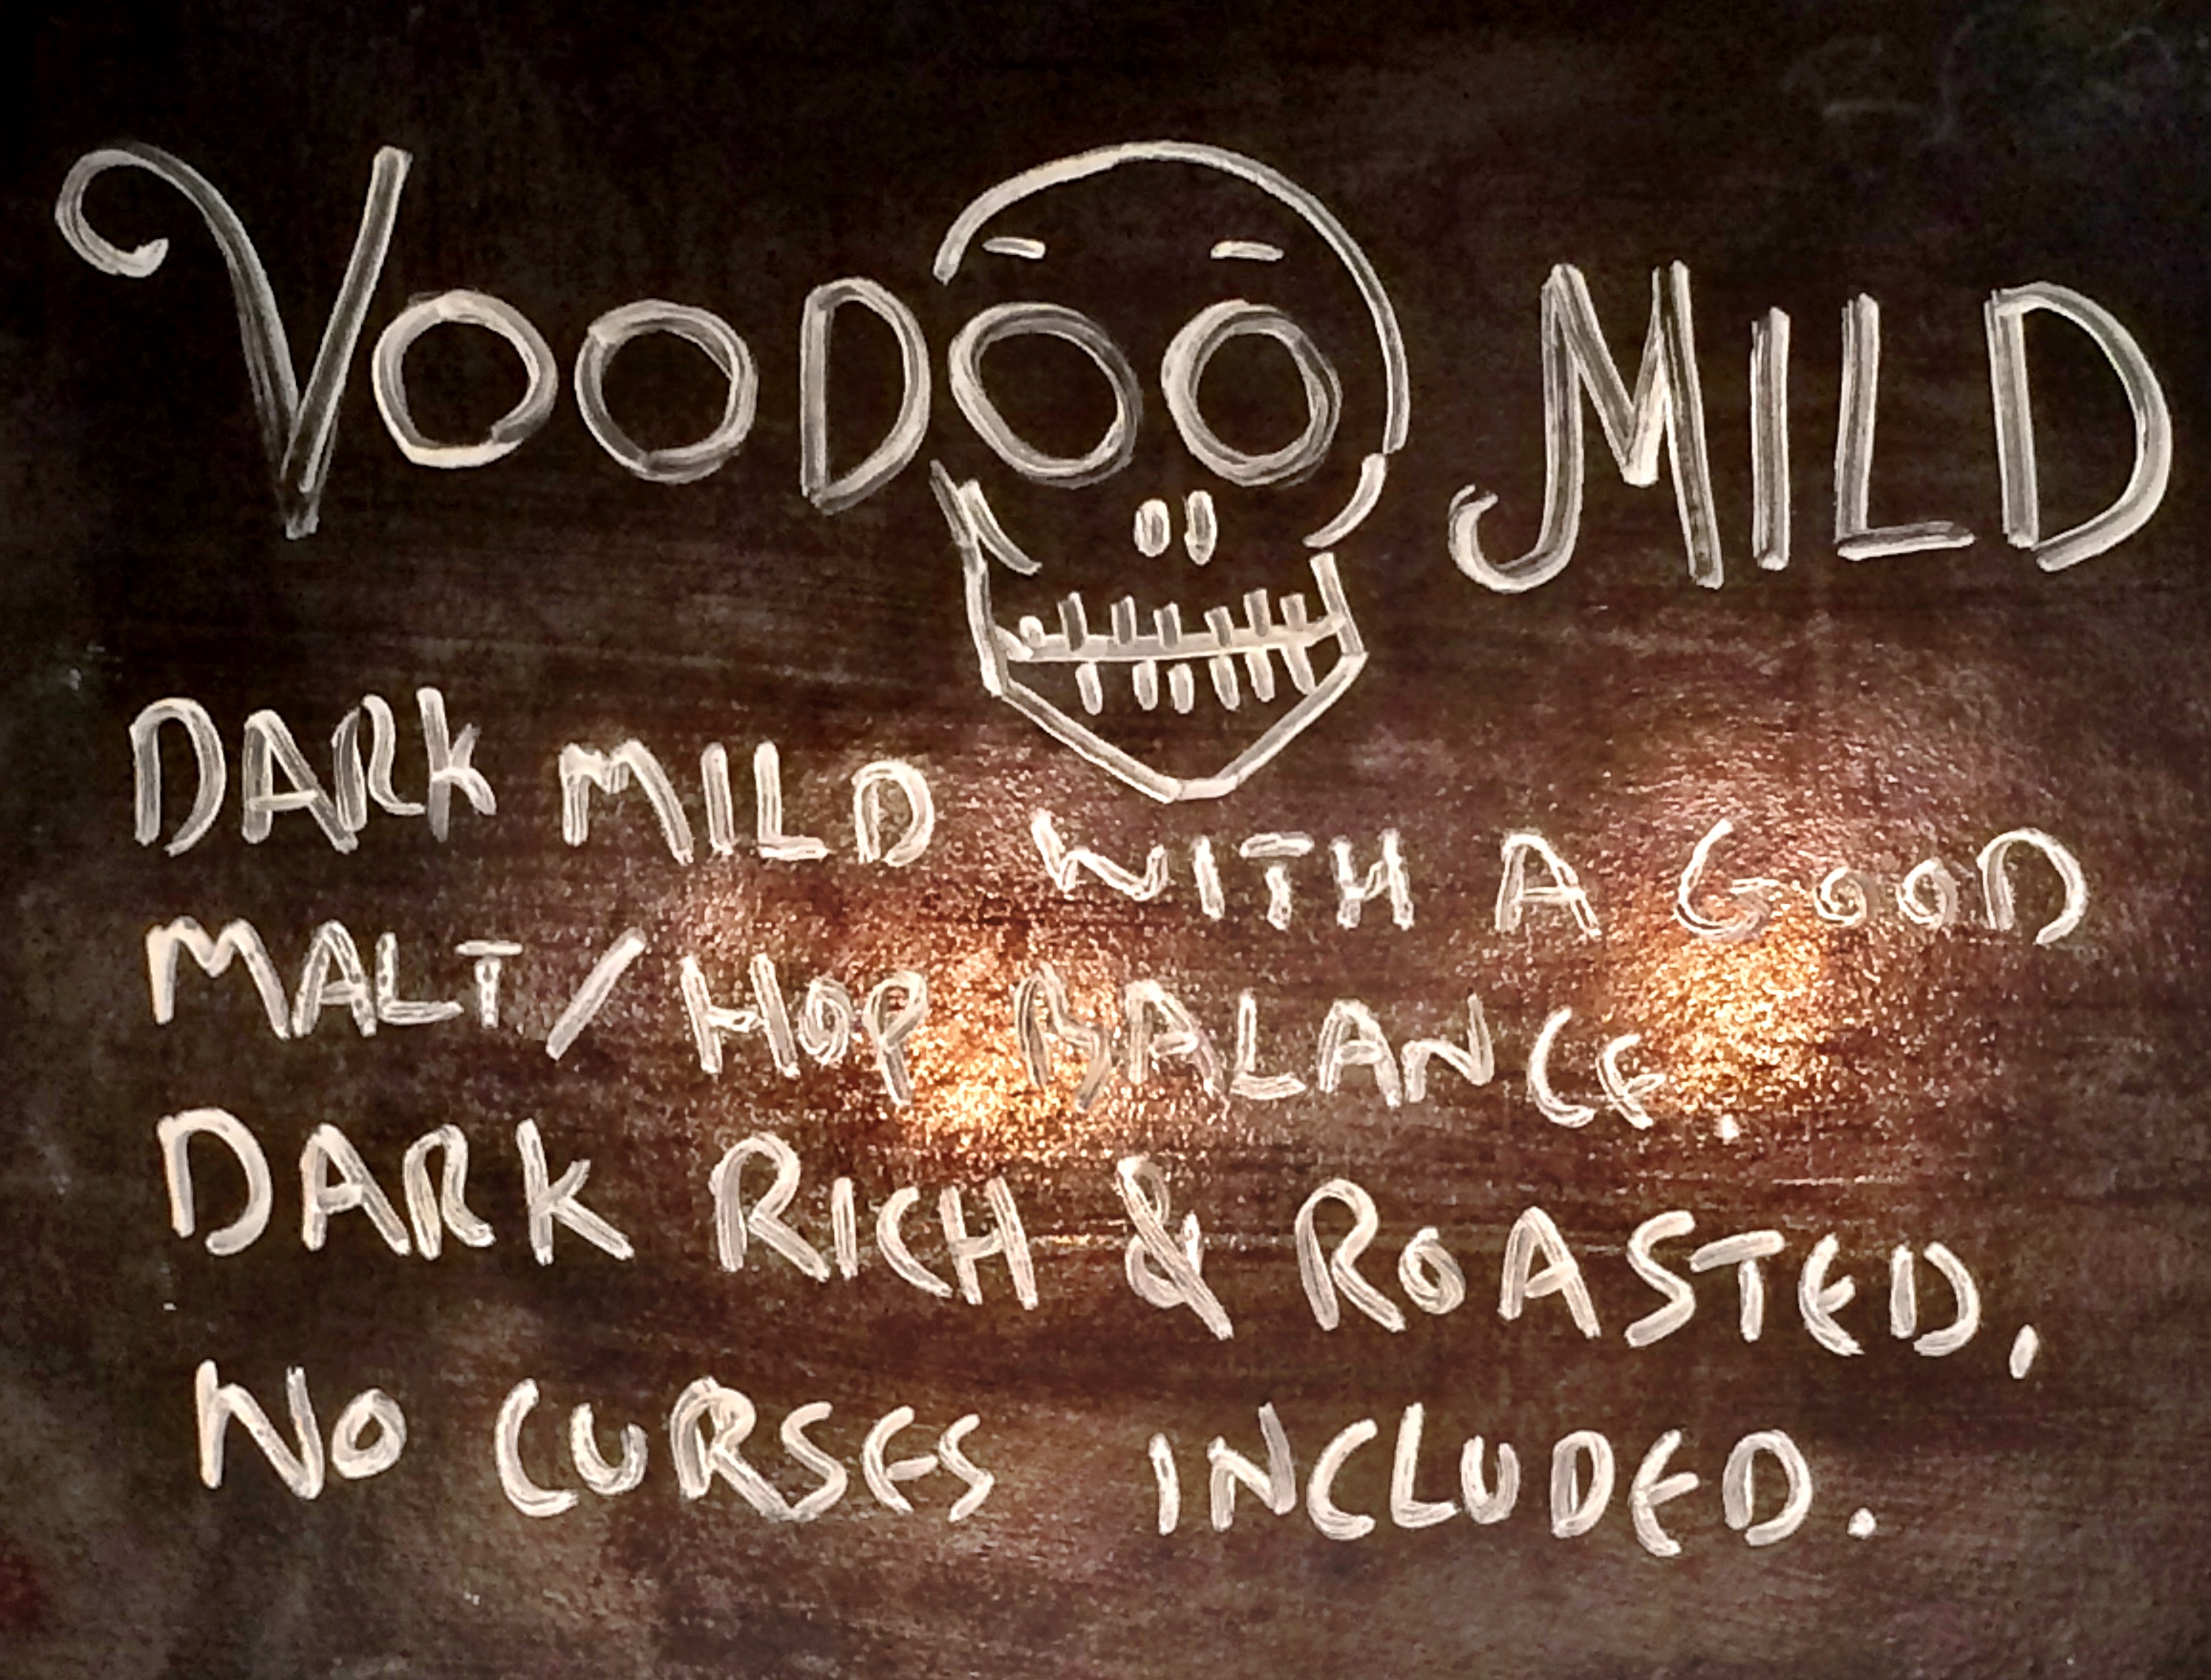 VOODOO MILD
DARK MILD WITH A GOOD
MALT/HOP BALANCE.
DARK RICH & ROASTED,
NO CURSES INCLUDED.